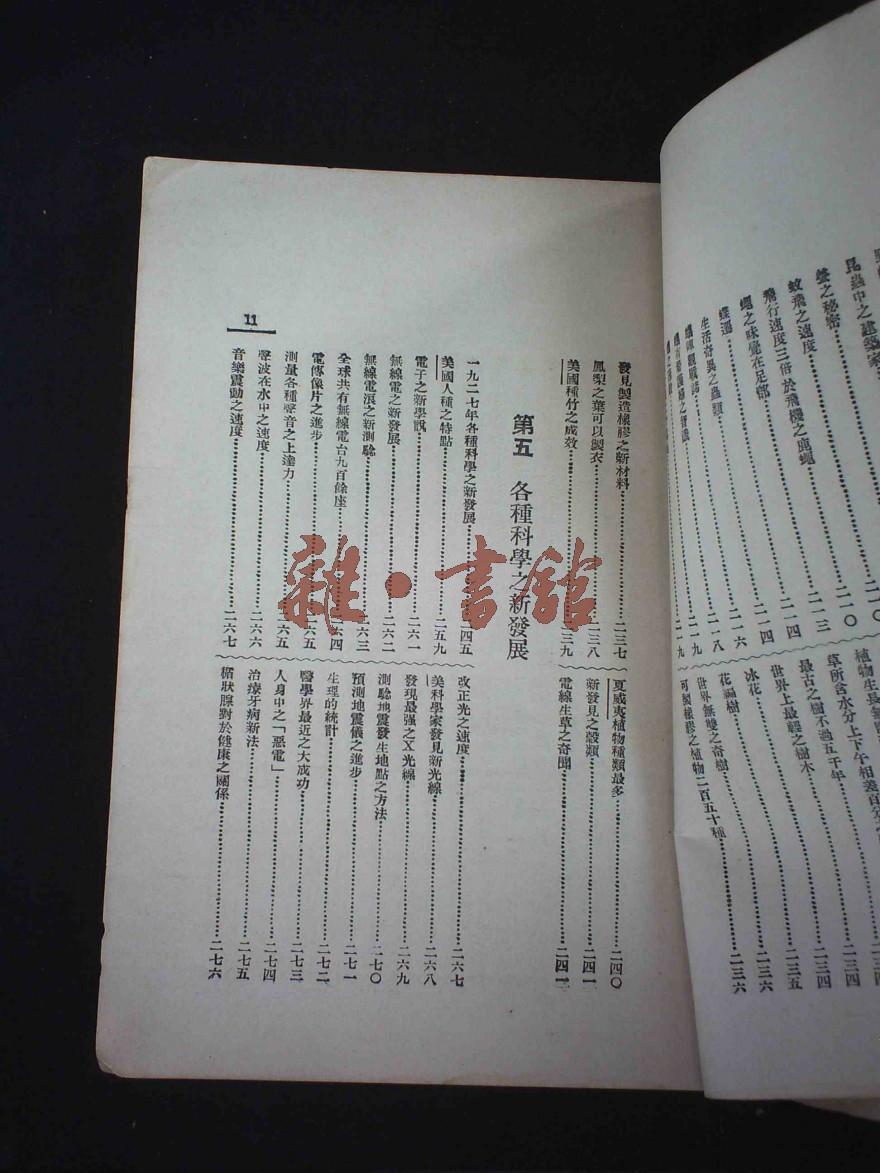 昆蟲中之建築家
螢之秘密……二一〇
蚊飛之速度……二一三
飛行速度三倍於飛機之鹿蠅……二一四
蠅之味覺在足部……二一四
蝶遷……二一六
生活奇異之蟲類……二一八
植物生長
草所含水分上下午相差百分之
最古之樹不過五千年……二三四
世界上最輕之樹木……二三五
冰花……二三六
花福樹
世界無雙之奇樹……二三六
可製橡膠之植物二百五十種
發見製造橡膠之新材料……二三七
鳳梨之葉可以製衣……二三八
美國種竹之成效……二三九
夏威夷植物種類最多……二四〇
新發見之穀類……二四一
電線生草之奇聞……二四二
第五 各種科學之新發展
一九二七年各種科學之新發展……二四五
美國人種之特點……二五九
電子之新學說……二六一
無線電之新發展……二六二
無線電浪之新測驗……二六三
全球共有無線電台九百餘座……二六四
電傳像片之進步……二六五
測量各種聲音之上達力……二六五
聲波在水中之速度……二六六
音樂震動之速度……二六七
改正光之速度……二六七
美科學家發見新光線……二六八
發現最强之X光線……二六九
測驗地震發生地點之方法……二七〇
預測地震儀之進步……二七一
生理的統計……二七二
醫學界最近之大成功……二七三
人身中之「惡電」……二七四
治療牙病新法……二七五
楯狀腺對於健康之關係……二七六
11
雜·書館